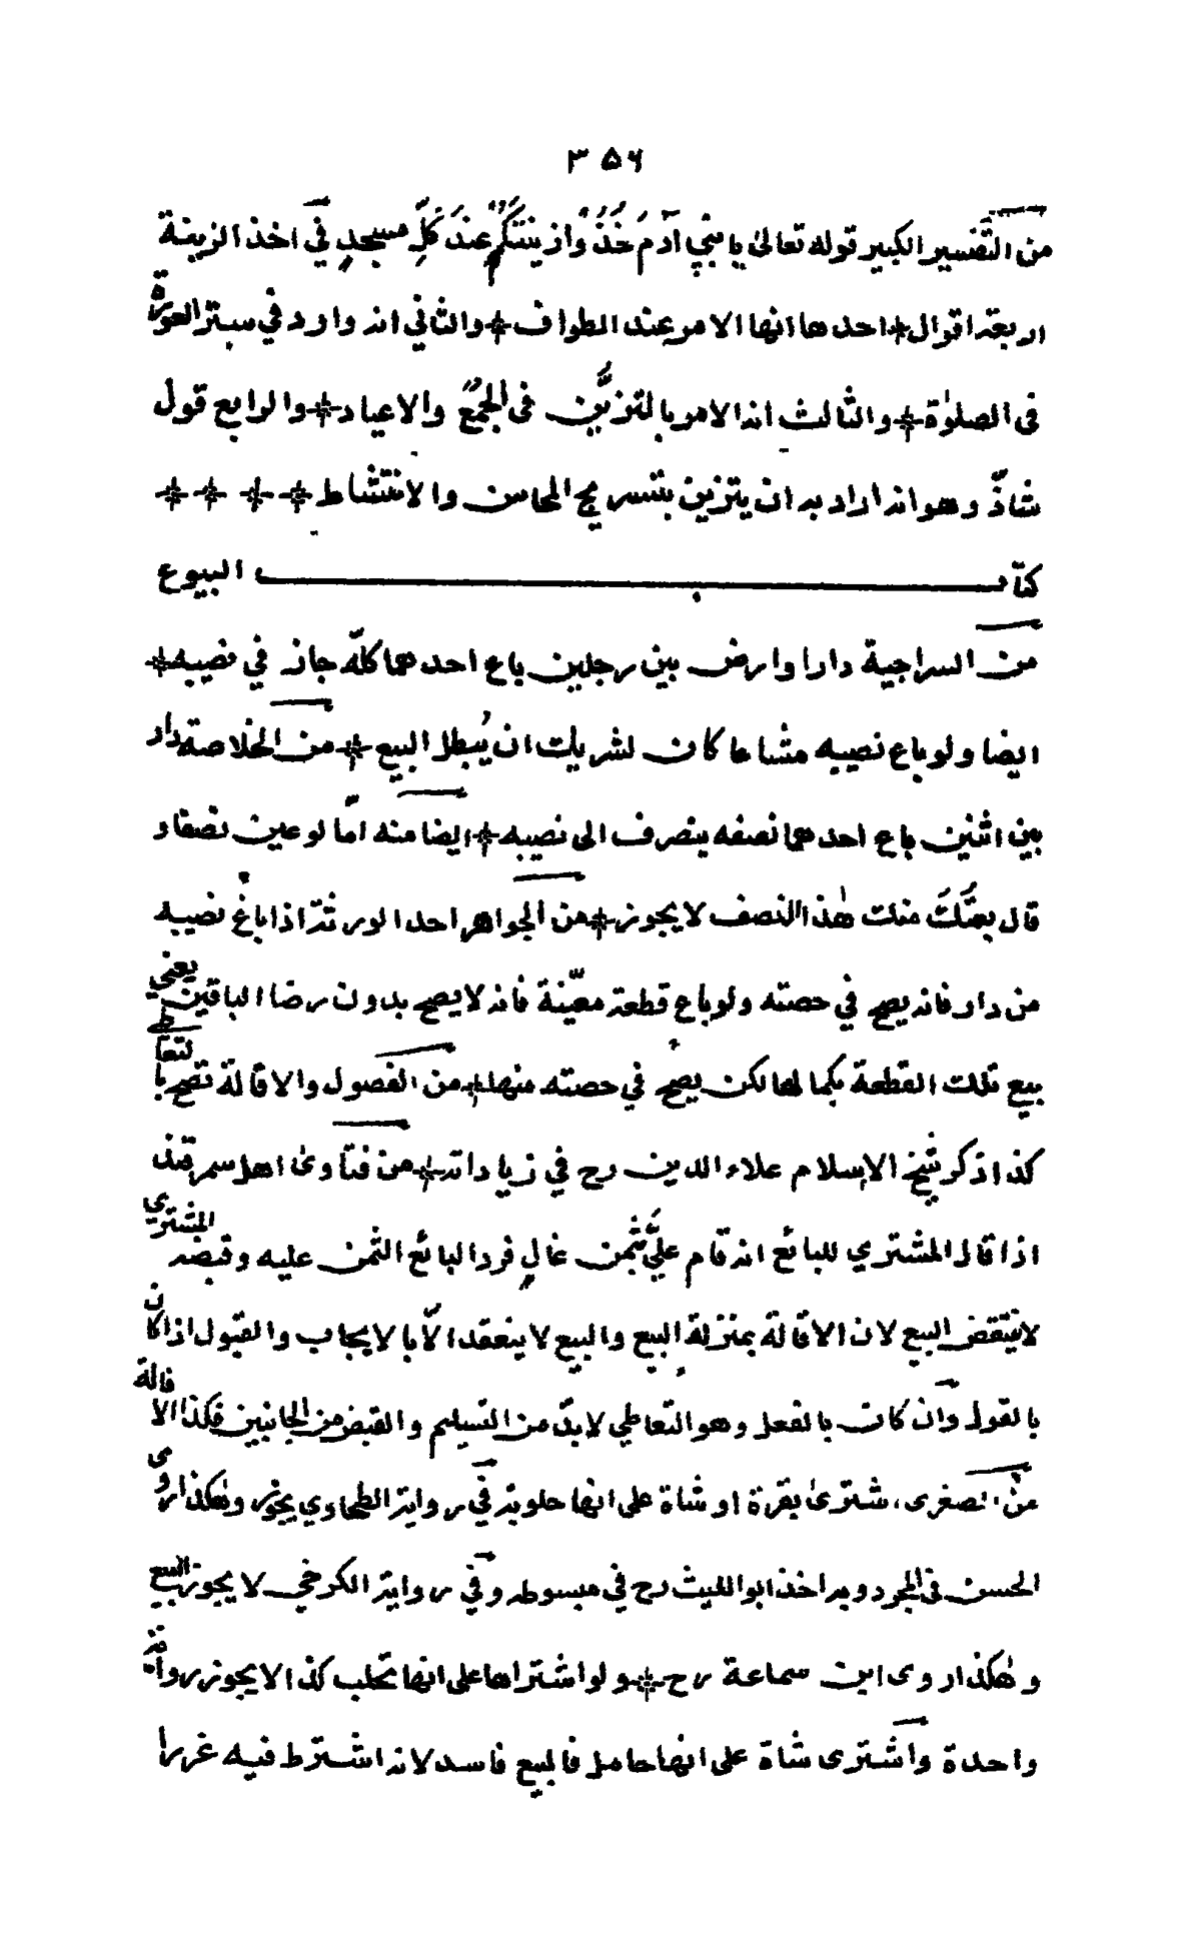 ٣٥٦
من التفسير الكبير قوله تعالىٰ يا بني آدَمَ خُذُوْا زِينَتَكُمْ عِنْدَ كُلِّ مسجدٍ في اخذ الزينة
اربعة اقوال احدها انها الامر عند الطواف والثاني انه وارد في ستر العورة
فى الصلوٰة والثالث انه الامر بالتزيُّن فى الجُمُعِ والاعياد والرابع قول
شاذّ وهو انه اراد به ان يتزين بتسريح المحاسن والامتشاط
كتاب البيوع
من السراجية دارا وارض بين رجلين باع احدهما كلّه جاز في نصيبه
ايضا ولو باع نصيبه مشاعا كان لشريك ان يُبطل البيع من الخلاصة دار
بين اثنين باع احدهما نصفه ينصرف الى نصيبه ايضا منه امّا لو عين نصفا و
قال بعتُكَ منك هٰذا النصف لا يجوز من الجواهر احد الورثة اذا باع نصيبه
من دار فانه يصح في حصته ولو باع قطعة معيّنة فانه لا يصح بدون رضا الباقين يعني
بيع تلك القطعة بكمالها لكن يصح في حصته منها من الفصول والاقالة تصح بالتعاطي
كذا ذكر شيخ الاسلام علاء الدين رح في زياداته من فتاوىٰ اهل سمرقند
اذا قال المشتري للبائع انه قام عليَّ بثمن غالٍ فرد البائع الثمن عليه وقبضه المشتري
لا ينتقض البيع لان الاقالة بمنزلة البيع والبيع لا ينعقد الّا بالايجاب والقبول اذا كان
بالقول وان كان بالفعل وهو التعاطي لا بدّ من التسليم والقبض من الجانبين فكذا الاقالة
من الصغرى اشترىٰ بقرة او شاة على انها حلوبة في رواية الطحاوي يجوز وهٰكذا روى
الحسن فى المجرد وبه اخذ ابو الليث رح في مبسوطه وفي رواية الكرخي لا يجوز البيع
وهٰكذا روى ابن سماعة رح ولو اشتراها على انها تحلب كذا لا يجوز رواية
واحدة واشترى شاة على انها حامل فالبيع فاسد لانه اشترط فيه غررا